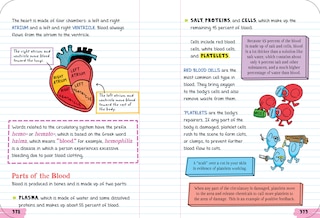 The heart is made of four chambers: a left and right
ATRIUM and a left and right VENTRICLE. Blood always
flows from the atrium to the ventricle.
The right atrium and
ventricle move blood
toward the lungs.
RIGHT
ATRIUM
LEFT
ATRIUM
The left atrium and
ventricle move blood
to the rest of the
body.
Words related to the circulatory system have the prefix
hemo- or hemato-, which is based on the Greek word
haima, which means "blood." For example, hemophilia
is a disease in which a person experiences excessive
bleeding due to poor blood clotting.
Parts of the Blood
Blood is produced in bones and is made up of two parts:
PLASMA, which is made of water and some dissolved
proteins and makes up about 55 percent of blood.
SALT, PROTEINS and CELLS, which make up the
remaining 45 percent of blood.
Cells include red blood
cells, white blood cells,
and PLATELETS.
Because 45 percent of the blood
is made up of salt and cells, blood
is a lot thicker than a solution like
salt water, which contains about
only 5 percent salt and other
substances, and a much higher
percentage of water than blood.
RED BLOOD CELLS are the
most common cell type in
blood. They bring oxygen
to the body's cells and also
remove waste from them.
PLATELETS are the body's
repairers. If any part of the
body is damaged, platelet cells
rush to the scene to form clots,
or clumps, to prevent further
blood flow to cuts.
A "scab" over a cut in your skin
is evidence of platelets working.
When any part of the circ